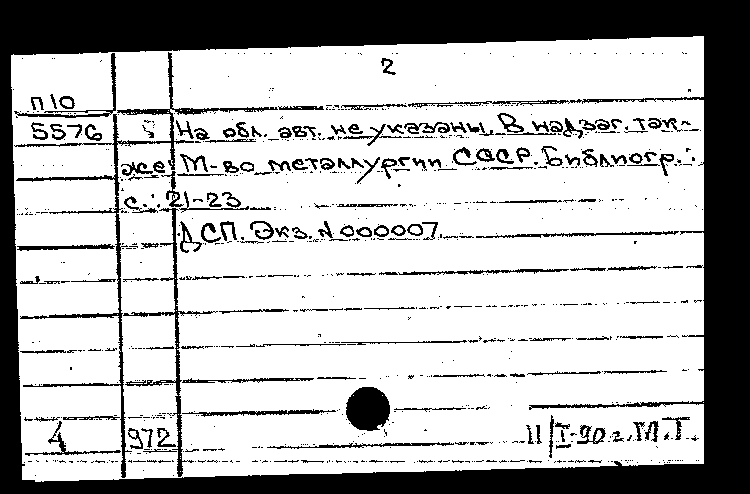 2
П10
5576 На обл. авт. не указаны. В надзаг. так-
же: М-во металлургии СССР. Библиогр.:
с.: 21-23
ДСП. Экз. N 000007
4 972 11|I-90 г. М.Т.